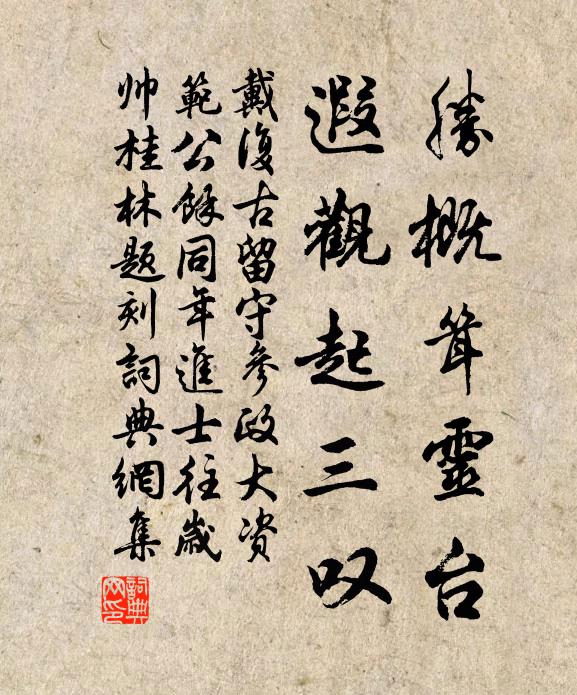 勝概耸靈台
遐觀起三叹
戴復古留守參政大资
範公餘同年進士往歲
帅桂林题刻詞典網集
詞典网印